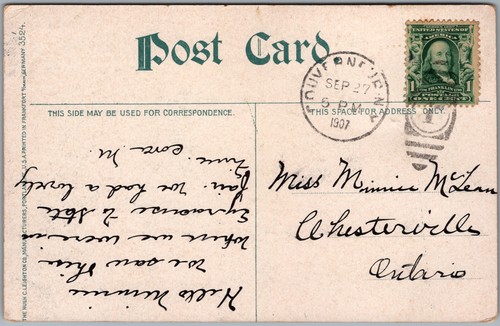 Post Card
THIS SIDE MAY BE USED FOR CORRESPONDENCE.
THIS SPACE FOR ADDRESS ONLY.
THE HUGH C. LEIGHTON CO., MANUFACTURERS, PORTLAND, ME., U.S.A. PRINTED IN FRANKFORT GERMANY 3524.
UNITED STATES OF AMERICA
FRANKLIN
POSTAGE
1 ONE CENT 1
GOUVERNEUR N.Y.
SEP 27
5 PM
1907
Hello Minnie
We saw this
when we were in
Syracuse to State
Fair. We had a lovely
time.
Cora M.
Miss Minnie McLean
Chesterville
Ontario